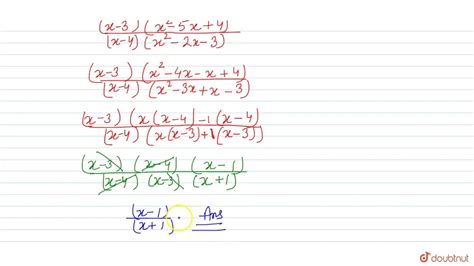 (x-3) (x²-5x+4)
(x-4) (x²-2x-3)
(x-3) (x²-4x-x+4)
(x-4) (x²-3x+x-3)
(x-3) (x(x-4)-1(x-4)
(x-4) (x(x-3)+1(x-3))
(x-3) (x-4) (x-1)
(x-4) (x-3) (x+1)
(x-1)
(x+1) . Ans
doubtnut